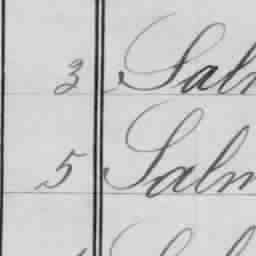 3 Saln
5 Salm